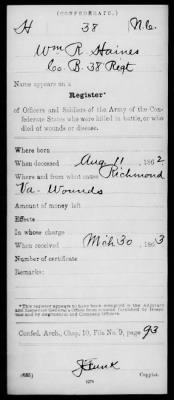 (CONFEDERATE.)
H 38 N.C.
Wm R. Haines
Co. B. 38 Regt
Name appears on a
Register*
of Officers and Soldiers of the Army of the Con-
federate States who were killed in battle, or who
died of wounds or disease.
Where born
When deceased Aug 11, 1862
Where and from what cause Richmond
Va- Wounds
Amount of money left
Effects
In whose charge
When received Mch 30, 1863
Number of certificate
Remarks:
*This register appears to have been compiled in the Adjutant
and Inspector General's Office from records furnished by
and Company Officers.
Confed. Arch., Chap. 10, File No. 9, page 93
J Funk
(635) Copyist.